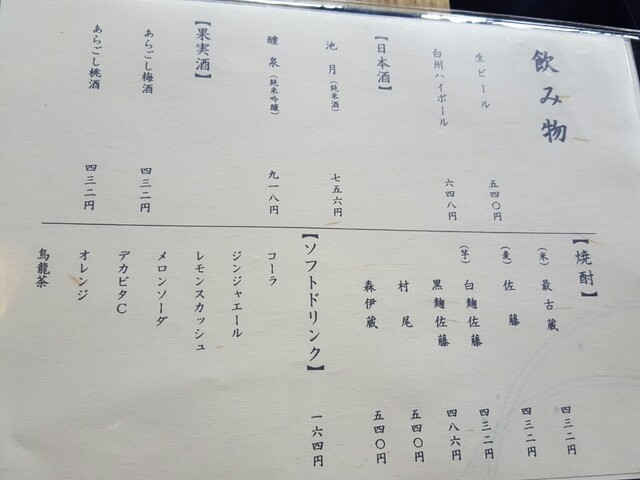 飲み物
生ビール 五四〇円
白州ハイボール 六四八円
【日本酒】
池月(純米酒) 七五六円
醴泉(純米吟醸) 九一八円
【果実酒】
あらごし梅酒 四三二円
あらごし桃酒 四三二円
【焼酎】
(米) 最古蔵 四三二円
(麦) 佐藤 四三二円
(芋) 白麹佐藤 四三二円
黒麹佐藤 四八六円
村尾 五四〇円
森伊蔵 五四〇円
【ソフトドリンク】 一六四円
コーラ
ジンジャエール
レモンスカッシュ
メロンソーダ
デカビタC
オレンジ
烏龍茶